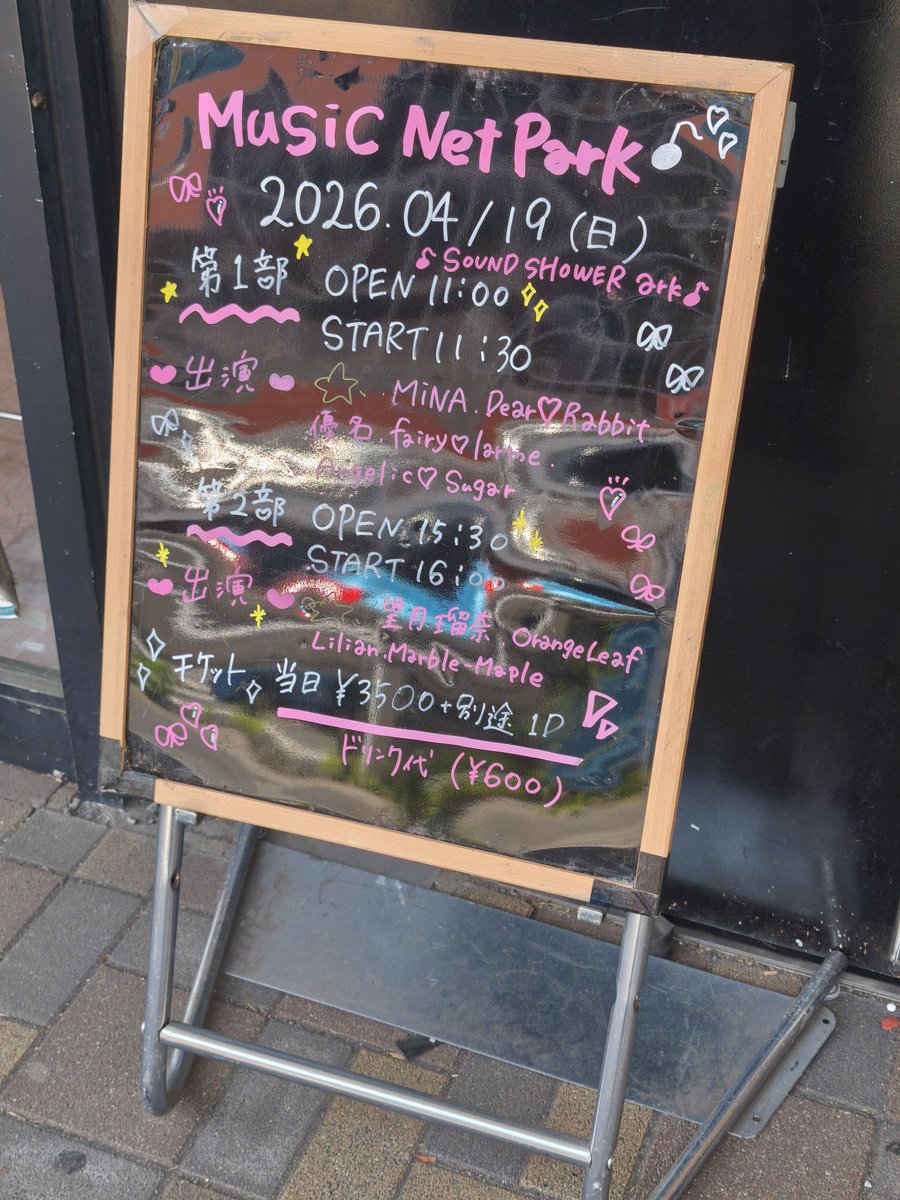 Music Net Park
2026.04/19(日)
♪SOUND SHOWER ark♪
第1部 OPEN 11:00
START 11:30
出演 MiNA.Dear♡Rabbit
優名.fairy♡larme.
Angelic♡Sugar
第2部 OPEN 15:30
START 16:00
出演 望月瑠奈 OrangeLeaf
Lilian.Marble-Maple
チケット 当日 ¥3500+別途 1D
ドリンク代 (¥600)